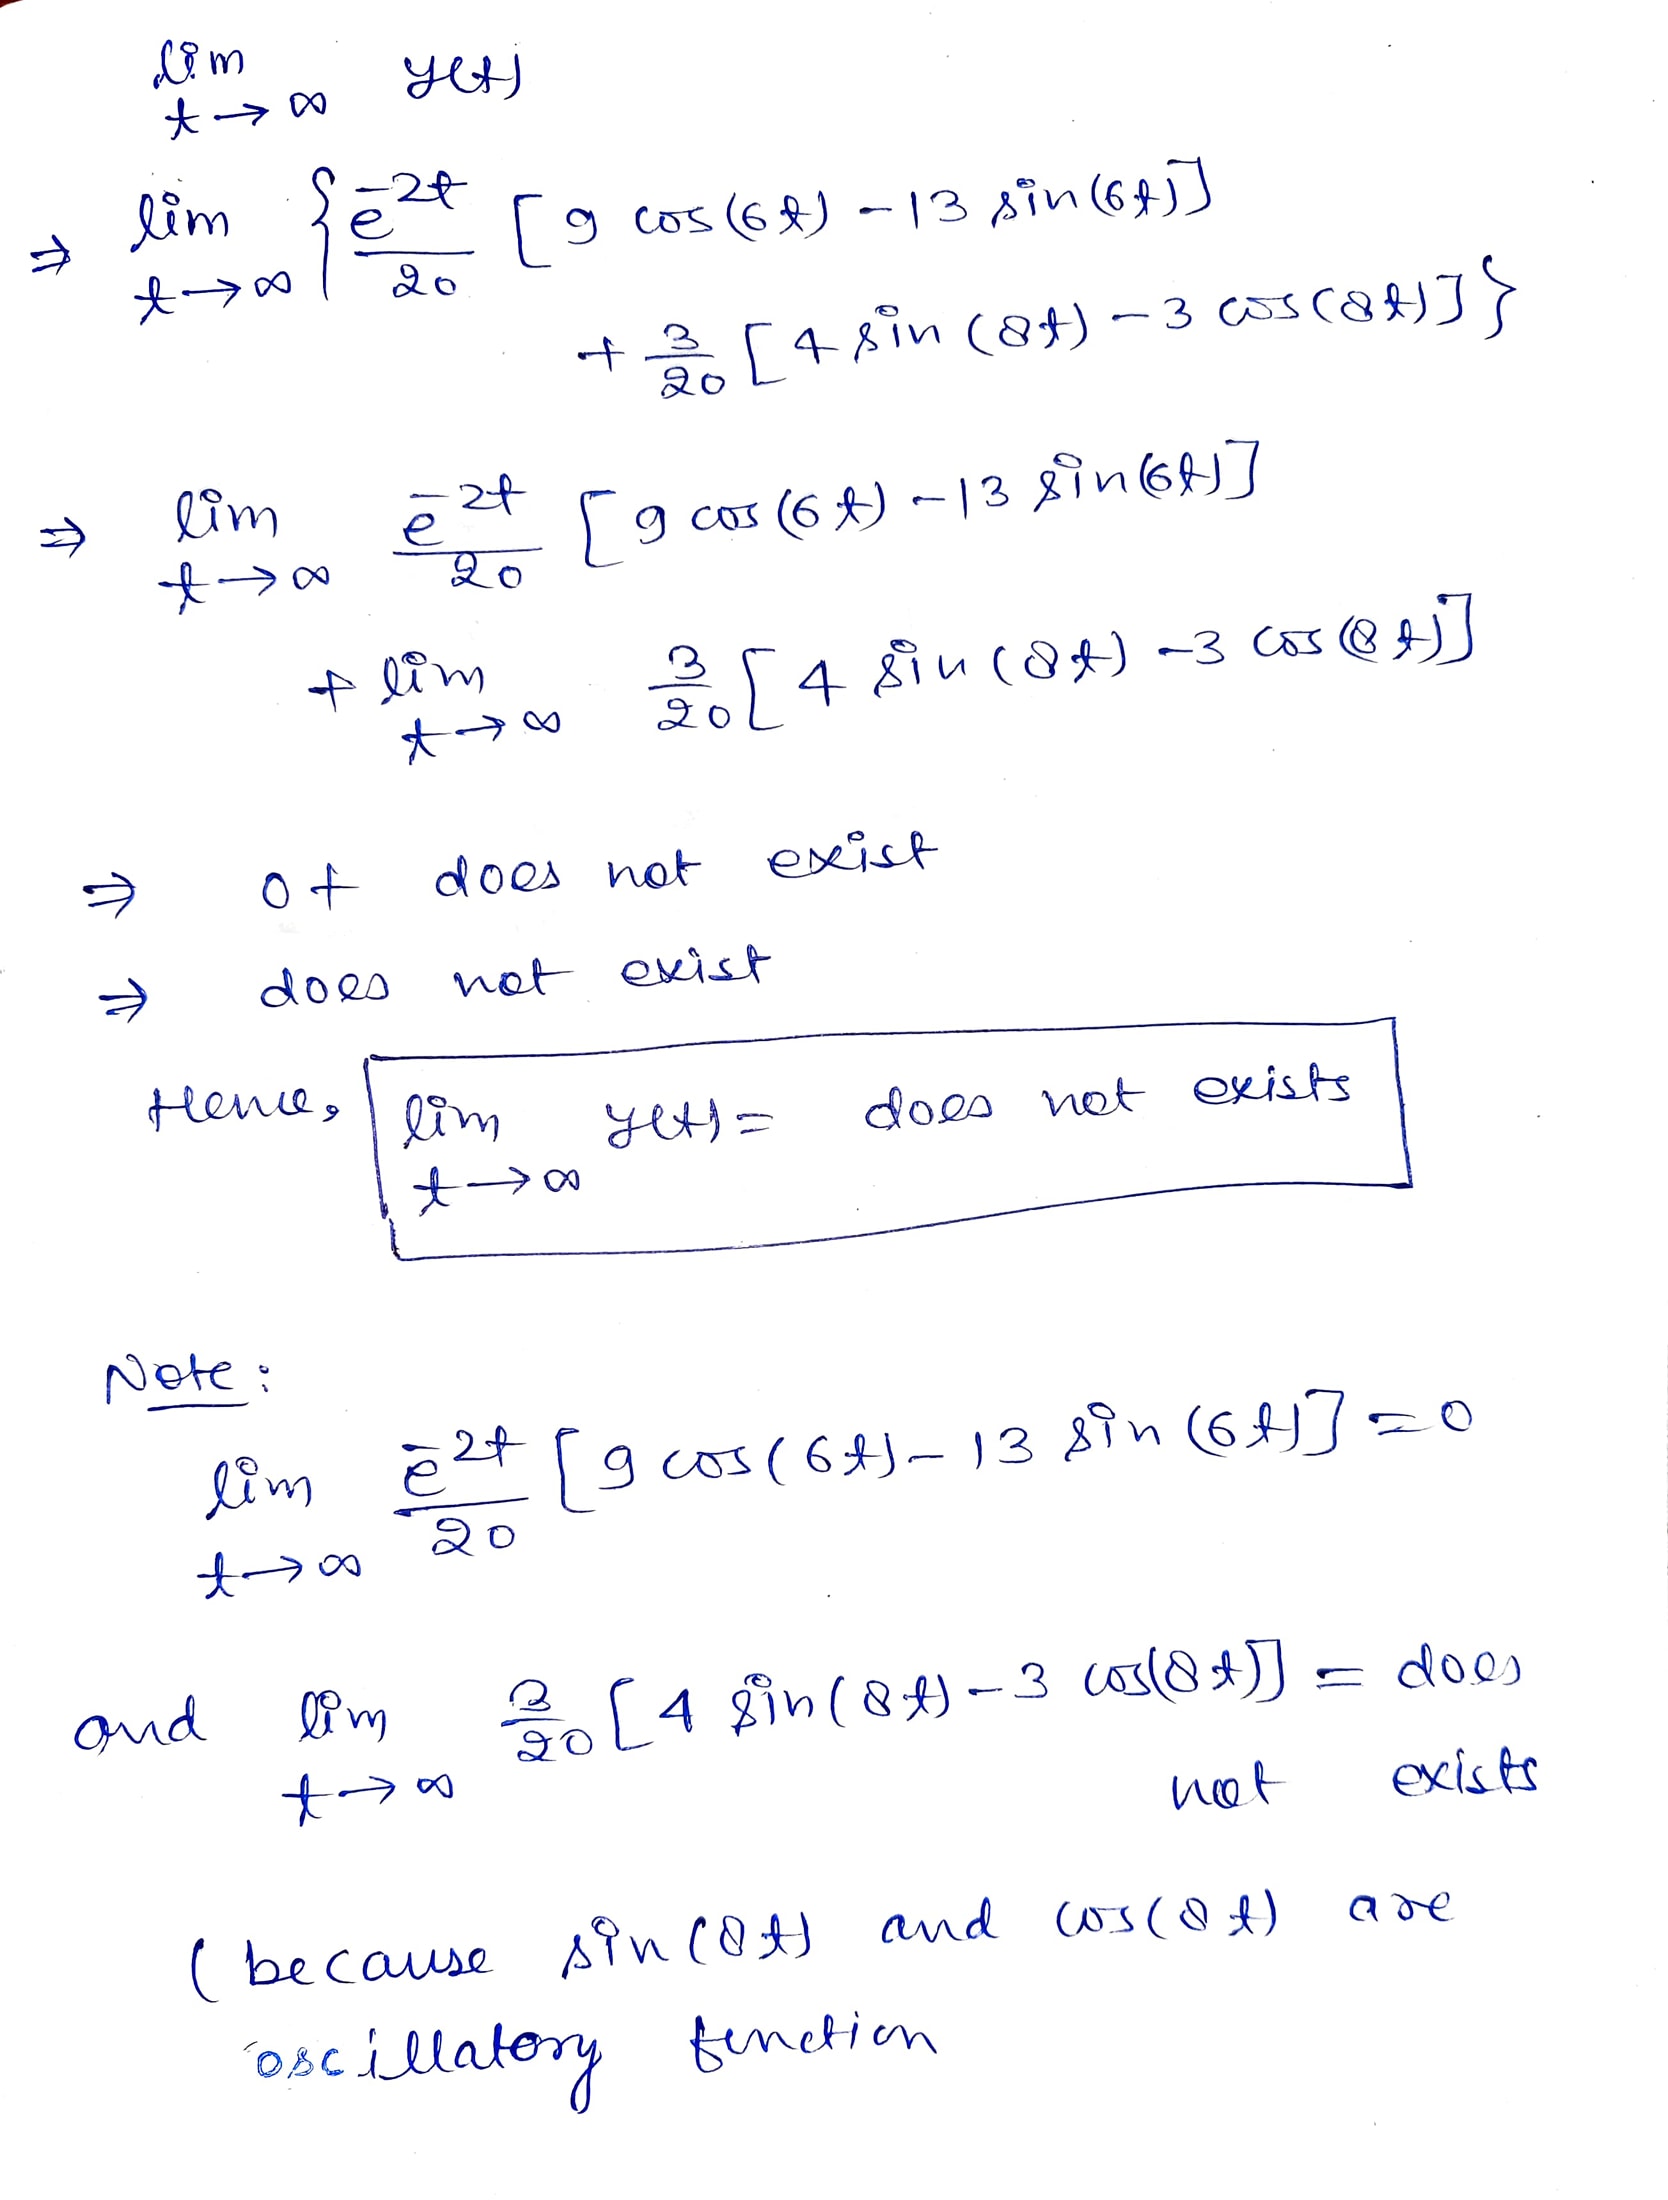 lim y(t)
t→∞
⇒ lim { e^-2t/20 [9 cos(6t) - 13 sin(6t)]
t→∞
+ 3/20 [4 sin(8t) - 3 cos(8t)] }
⇒ lim e^-2t/20 [9 cos(6t) - 13 sin(6t)]
t→∞
+ lim 3/20 [4 sin(8t) - 3 cos(8t)]
t→∞
⇒ 0 + does not exist
⇒ does not exist
Hence, lim y(t) = does not exists
t→∞
Note:
lim e^-2t/20 [9 cos(6t) - 13 sin(6t)] = 0
t→∞
and lim 3/20 [4 sin(8t) - 3 cos(8t)] = does
t→∞ not exists
(because sin(8t) and cos(8t) are
oscillatory function